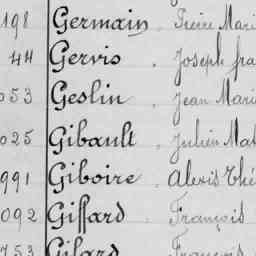 198 Germain, Pierre Mari
44 Gervis, Joseph fra
053 Geslin, Jean Mari
025 Gibault, Julien Mat
991 Giboire, Alexis Thé
092 Giffard, François
753 Gilard François